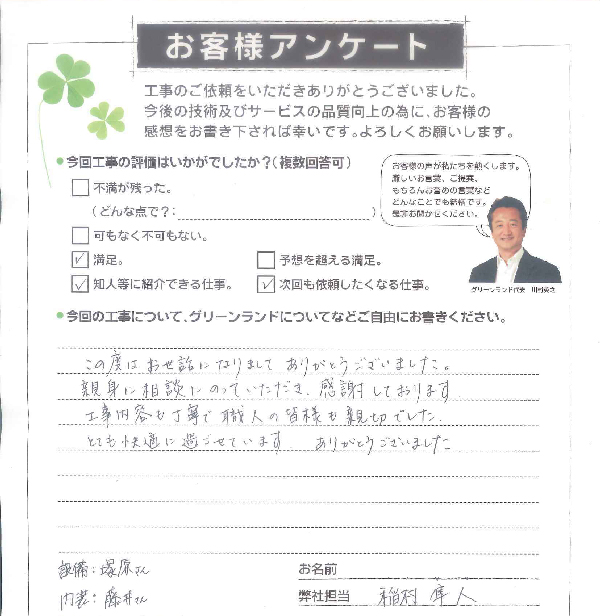 お客様アンケート
工事のご依頼をいただきありがとうございました。
今後の技術及びサービスの品質向上の為に、お客様の
感想をお書き下されば幸いです。よろしくお願いします。
●今回工事の評価はいかがでしたか?(複数回答可)
不満が残った。
(どんな点で?:                )
可もなく不可もない。
☑ 満足。
予想を超える満足。
☑ 知人等に紹介できる仕事。
☑ 次回も依頼したくなる仕事。
お客様の声が私たちを動くします。
厳しいお言葉、ご提案、
もちろんお褒めの言葉など
どんなことでも結構です。
是非お聞かせください。
グリーンランド代表 川村
●今回の工事について、グリーンランドについてなどご自由にお書きください。
この度はお世話になりまして ありがとうございました。
親身に相談にのっていただき、感謝しております
工事内容も丁寧で職人の皆様も親切でした.
とても快適に過ごせています. ありがとうございました
設備:塚原さん
内装:藤井さん
お名前
弊社担当 稲村 隼人